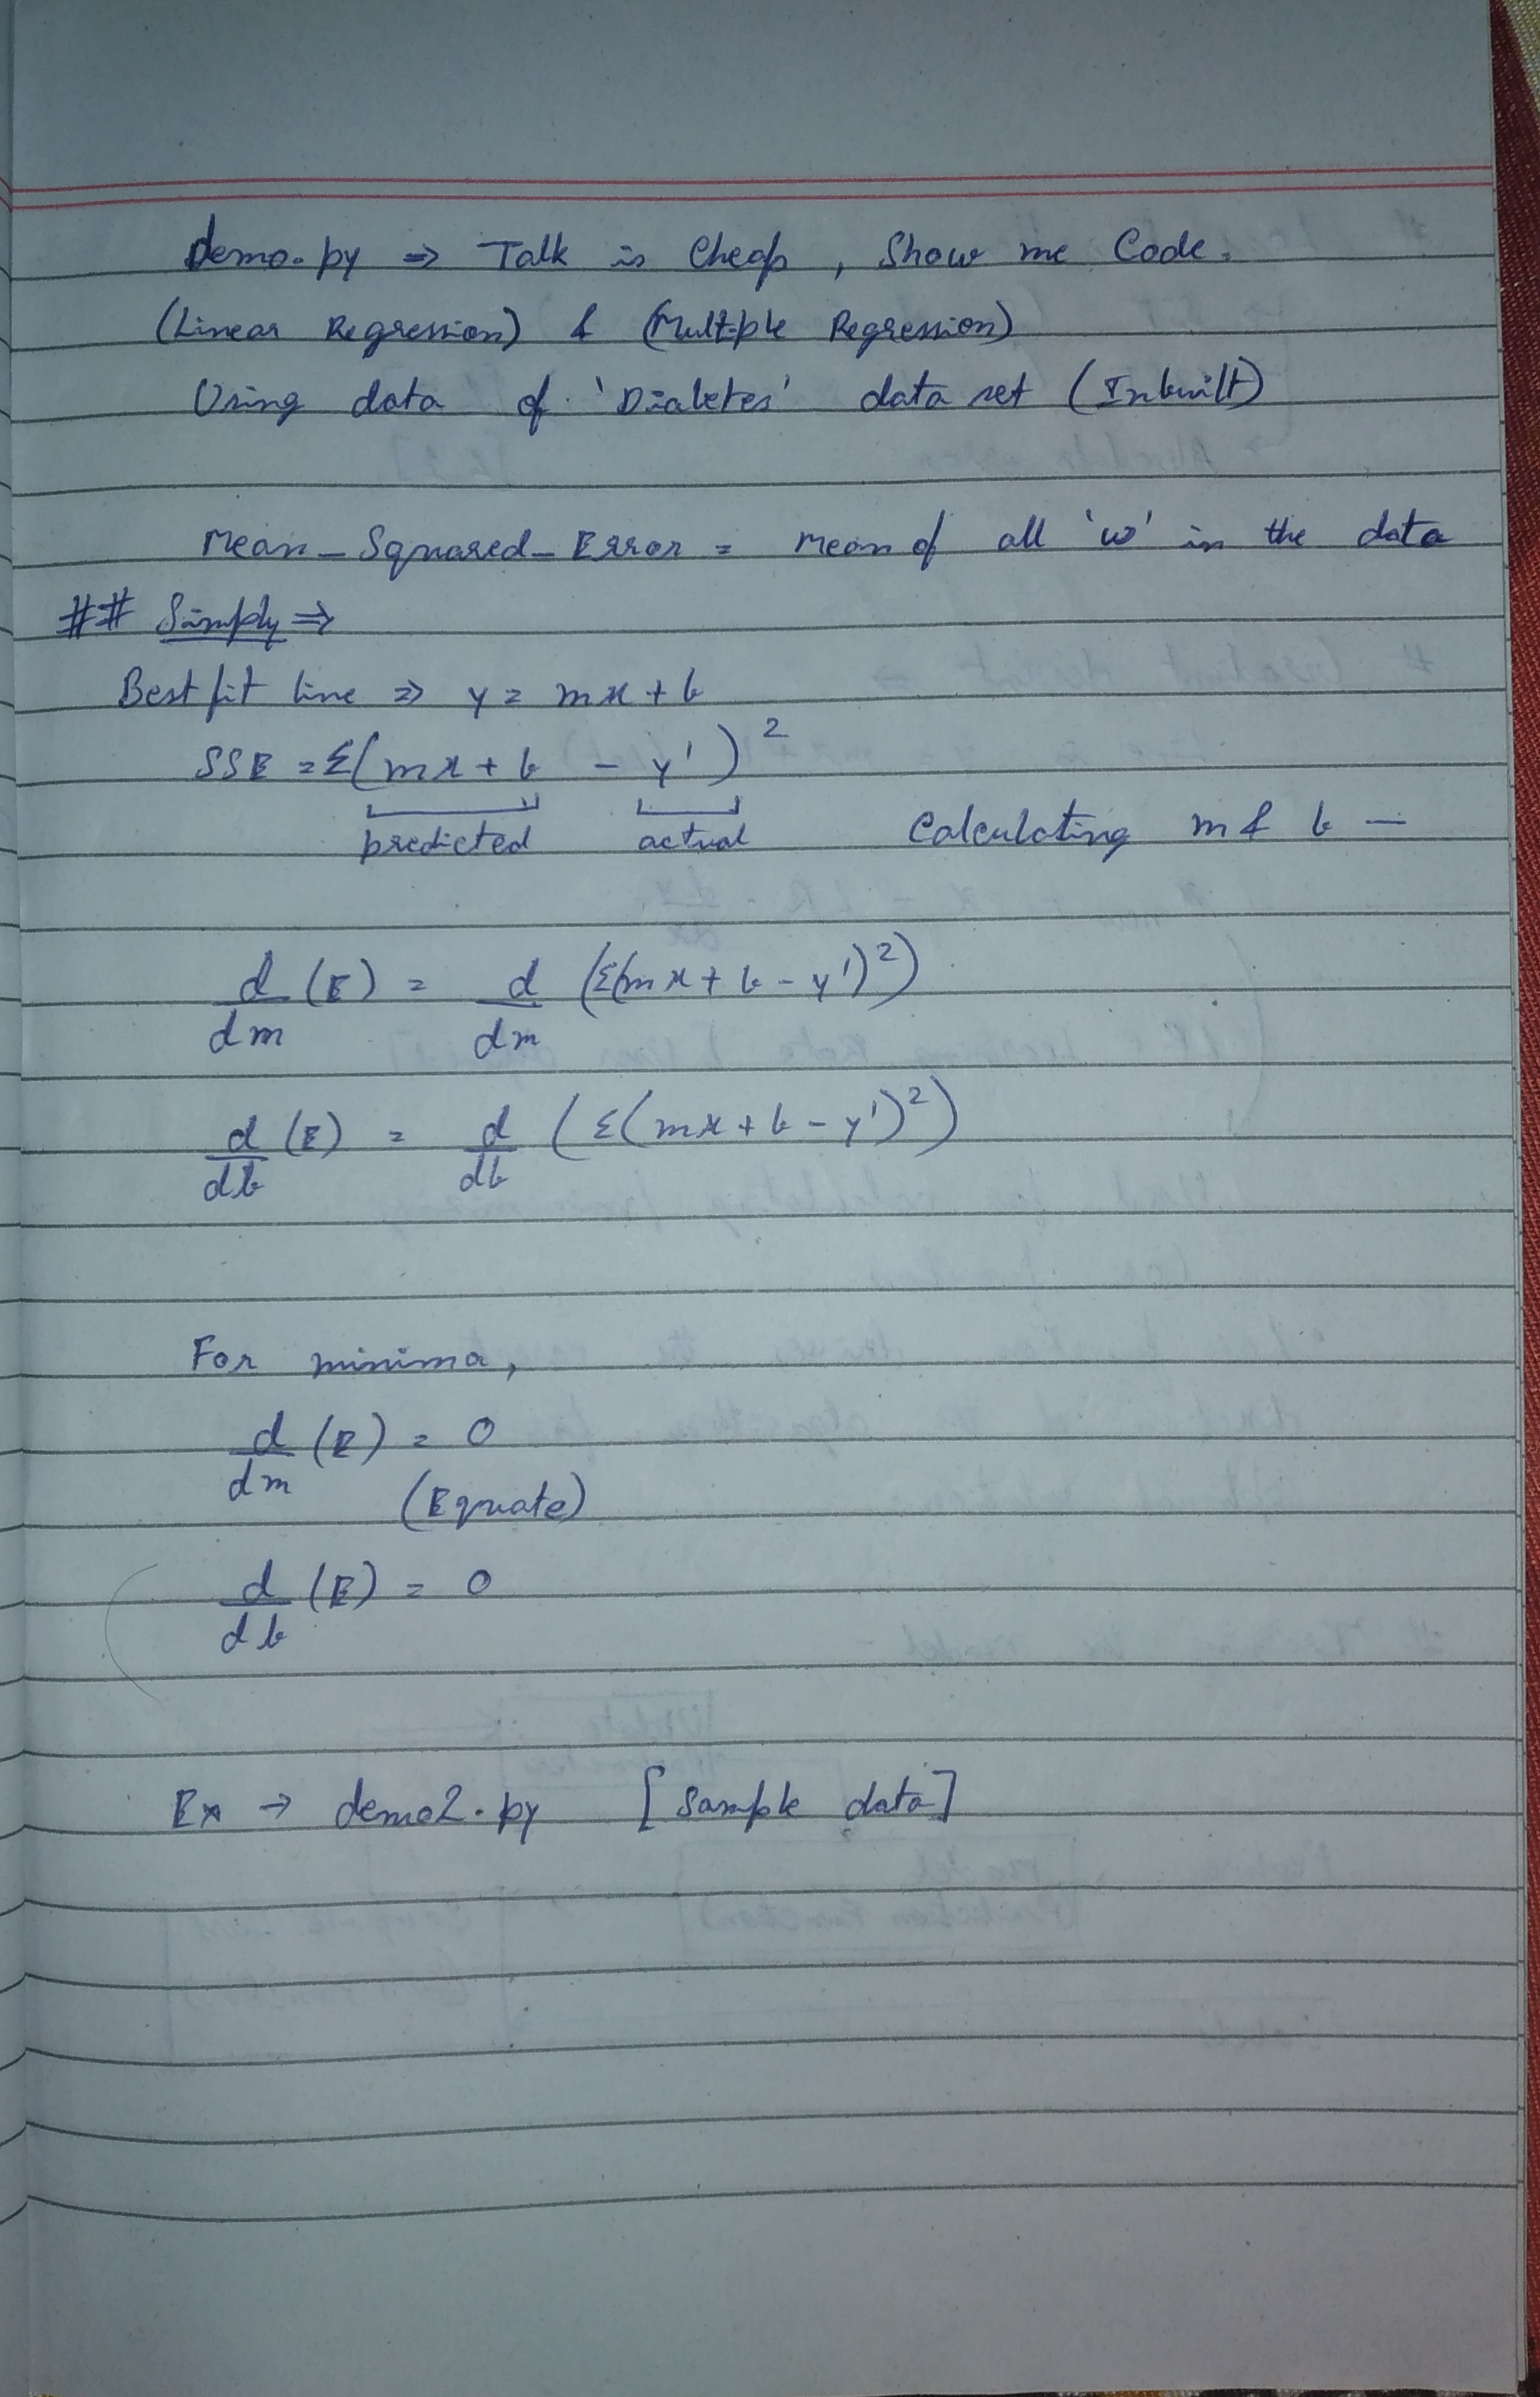 demo.py ⇒ Talk is Cheap, Show me Code.
(Linear Regression) & (Multiple Regression)
Using data of 'Diabetes' data set (Inbuilt)
Mean_Squared_Error = mean of all 'w' in the data
## Simply ⇒
Best fit line ⇒ y = mx + b
SSE = Σ(mx + b - y')²
predicted actual Calculating m & b —
d/dm (E) = d/dm (Σ(mx + b - y')²)
d/db (E) = d/db (Σ(mx + b - y')²)
For minima,
d/dm (E) = 0
(Equate)
d/db (E) = 0
Ex → demo2.py [Sample data]